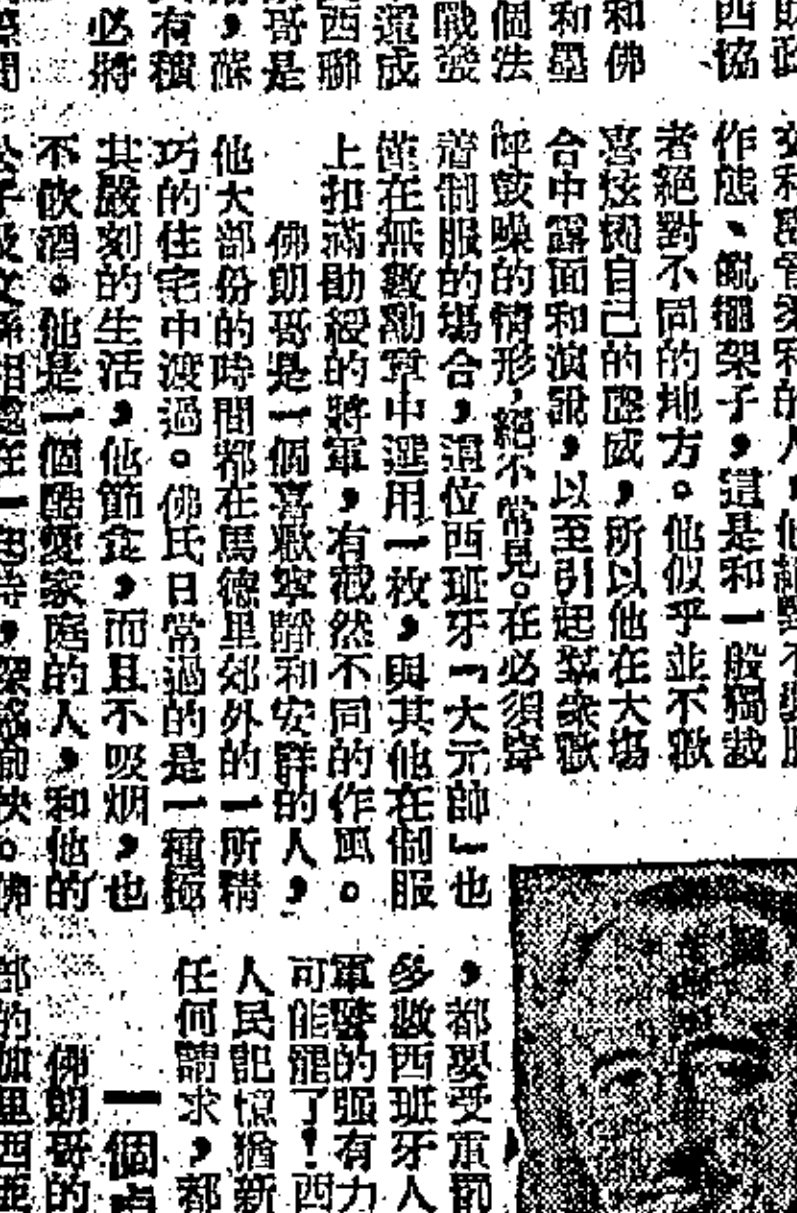 財政
西協
和佛
和墨
個法
戰後
還成
西聯
哥是
,蘇
有積
必將
作態、覥擺架子,這是和一般獨裁
者絕對不同的地方。他似乎並不歡
喜炫耀自己的權威,所以他在大場
合中露面和演說,以至引起羣衆歡
呼鼓噪的情形,絕不常見。在必須穿
着制服的場合,這位西班牙「大元帥」也
僅在無數勳章中選用一枚,與其他在制服
上扣滿勛綬的將軍,有截然不同的作風。
佛朗哥是一個喜歡寧靜和安群的人,
他大部份的時間都在馬德里郊外的一所精
巧的住宅中渡過。佛氏日常過的是一種極
其嚴刻的生活,他節食,而且不吸烟,也
不飲酒。他是一個酷愛家庭的人,和他的
,都要受軍罰
多數西班牙人
軍警的强有力
可能罷了!西
人民記憶猶新
任何請求,都
一個
佛朗哥的
部的加里西亞